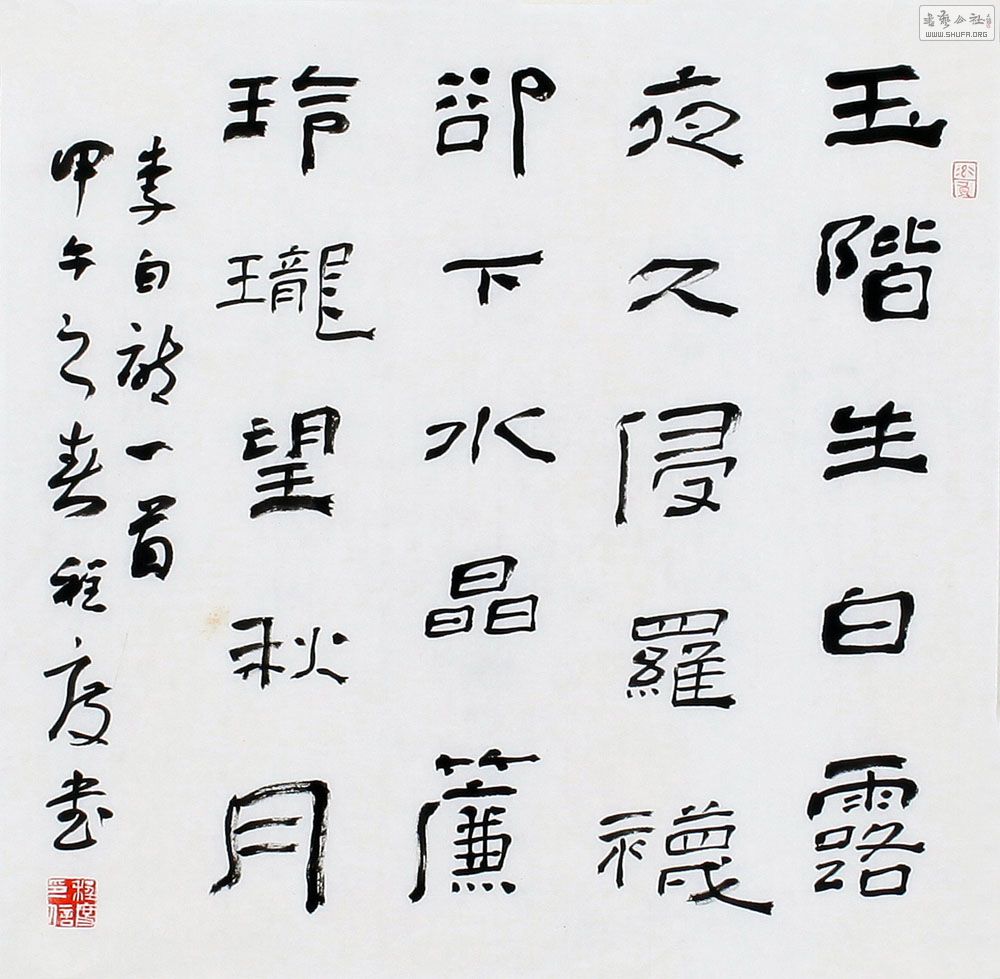 玉階生白露
夜久侵羅襪
卻下水晶簾
玲瓏望秋月
李白詩一首
甲午之春程度書
程度印信
書藝公社
WWW.SHUFA.ORG